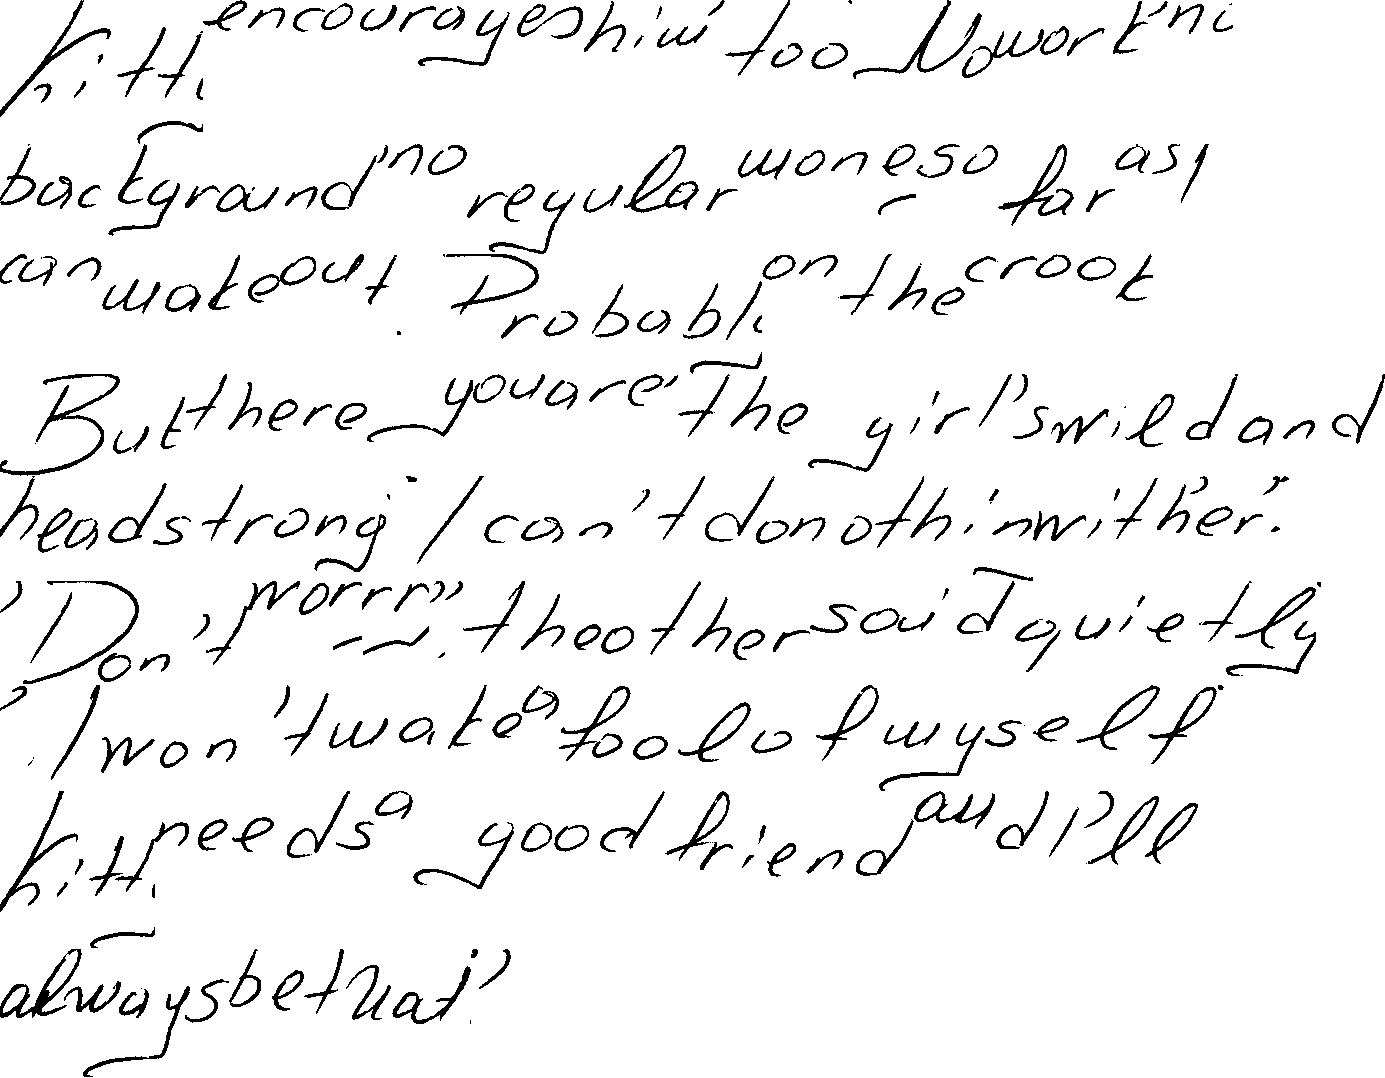 Kitty encourages him too. No workin'
background, no regular money so far as I
can make out. Probably on the crook
But there you are. The girl's wild and
headstrong. I can't do nothin' with her.'
'Don't worry', the other said quietly
'I won't make a fool of myself
Kitty needs a good friend and I'll
always be that.'